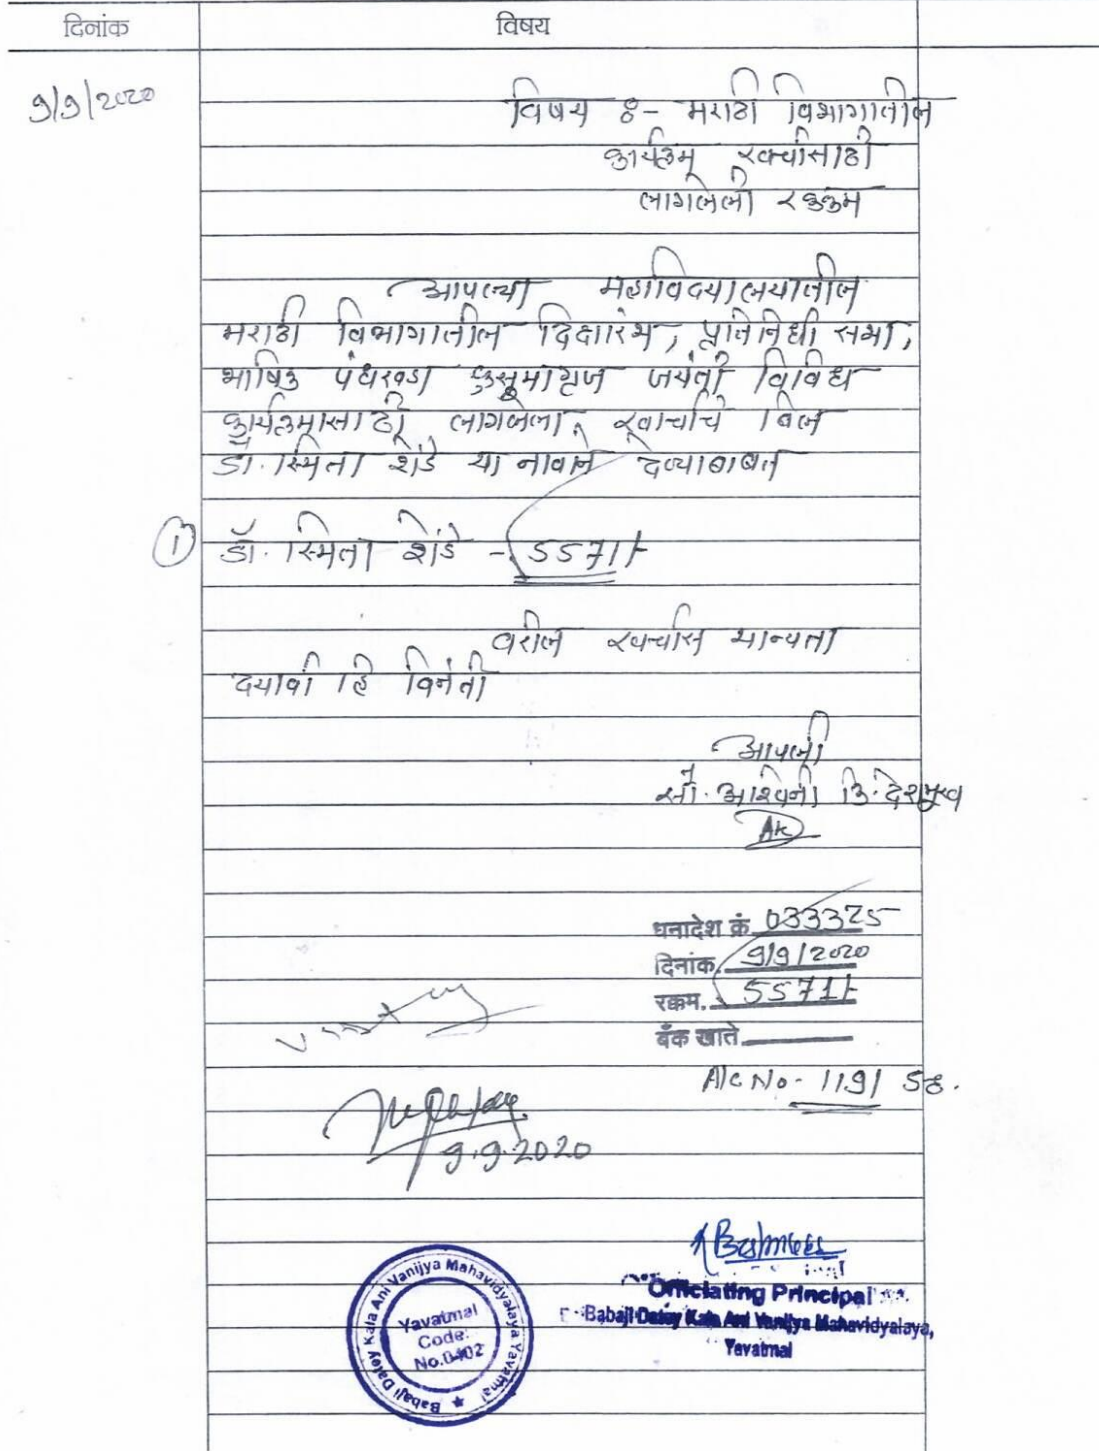 दिनांक विषय
9/9/2020
विषय :- मराठी विभागातील
कार्यक्रम खर्चासाठी
लागलेली रक्कम
आपल्या महाविद्यालयातील
मराठी विभागातील दिक्षारंभ, प्रतिनिधी सभा,
भाषिक पंधरवडा कुसुमाग्रज जयंती विविध
कार्यक्रमासाठी लागलेला खर्चाचे बिल
डॉ. स्मिता शेंडे या नावाने देण्याबाबत
1 डॉ. स्मिता शेंडे - 5571/-
वरील खर्चास मान्यता
दयावी हि विनंती
आपली
सौ. अश्विनी वि. देशमुख
धनादेश क्रं 033325
दिनांक 9/9/2020
रक्कम. 5571/-
बँक खाते
A/c No- 1191
9.9.2020
Officiating Principal
Babaji Datey Kala Ani Vanijya Mahavidyalaya,
Yavatmal
Babaji Datey Kala Ani Vanijya Mahavidyalaya Yavatmal
Yavatmal
Code:
No.0402